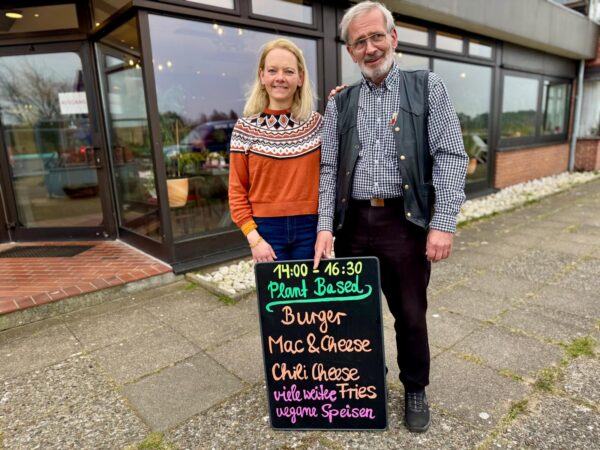 AUSGANG
AUSGANG
14:00 - 16:30
Plant Based
Burger
Mac & Cheese
Chili Cheese
Fries
viele weitere
vegane Speisen